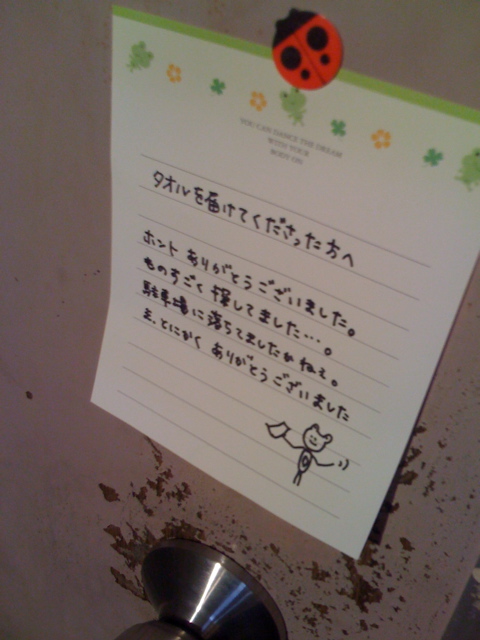 YOU CAN DANCE THE DREAM
WITH YOUR
BODY ON
タオルを届けてくださった方へ
ホント ありがとうございました。
ものすごく 探してました…。
駐車場に落ちてましたかねぇ。
ま、とにかく ありがとうございました